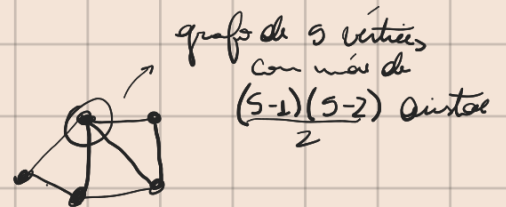 grafo de 5 vértices
com más de
(5-1)(5-2) aristas
2